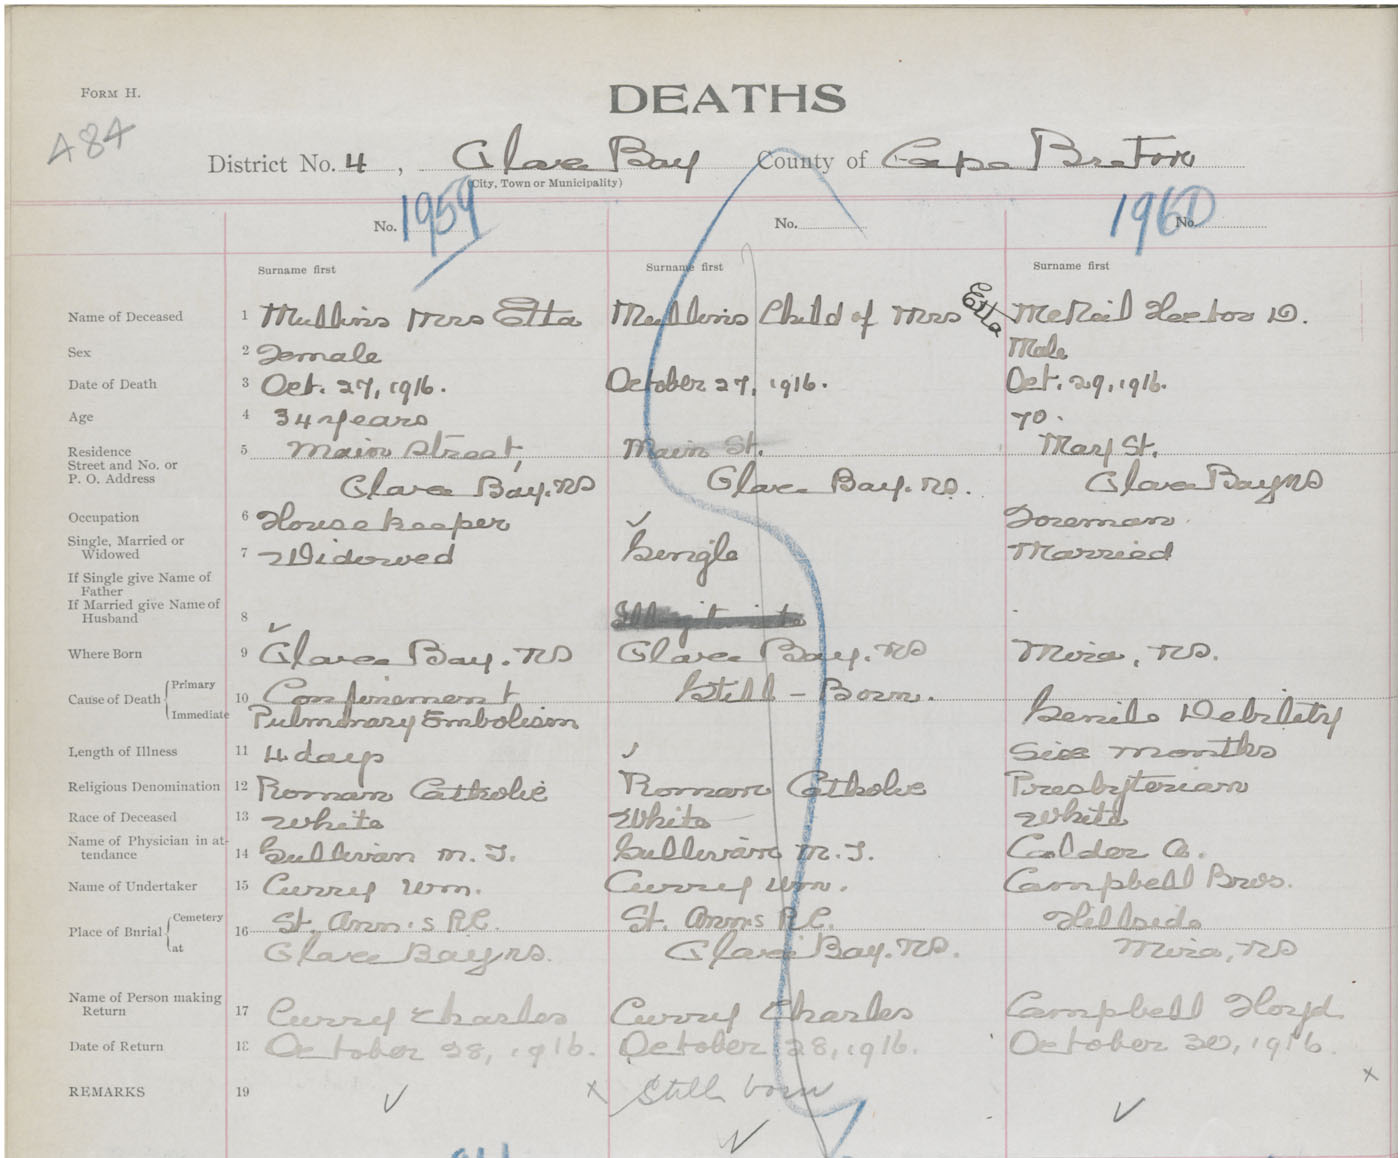 FORM H.
DEATHS
484
District No. 4, Glace Bay County of Cape Breton
(City, Town or Municipality)
No. 1959 No. 1960 No.
Surname first Surname first Surname first
Name of Deceased 1 Mullins Mrs Etta Mullins Child of Mrs Etta McNeil Hector D.
Sex 2 Female Male
Date of Death 3 Oct. 27, 1916. October 27, 1916. Oct. 29, 1916.
Age 4 34 years 70.
Residence 5 Main Street, Main St. Mary St.
Street and No. or
P. O. Address Glace Bay. NS Glace Bay. NS. Glace Bay NS
Occupation 6 Housekeeper ✓ Foreman
Single, Married or
Widowed 7 Widowed Single Married
If Single give Name of
Father
If Married give Name of
Husband 8 ✓
Where Born 9 Glace Bay. NS Glace Bay. NS Mira, NS.
Cause of Death Primary 10 Confinement Still - Born.
Immediate Pulmonary Embolism Senile Debility
Length of Illness 11 4 days ✓ Six months
Religious Denomination 12 Roman Catholic Roman Catholic Presbyterian
Race of Deceased 13 White White White
Name of Physician in at-
tendance 14 Sullivan M. T. Sullivan M. T. Calder A.
Name of Undertaker 15 Curry Wm. Curry Wm. Campbell Bros.
Place of Burial Cemetery 16 St. Ann's R.C. St. Ann's R.C. Hillside
at Glace Bay NS. Glace Bay. NS. Mira, NS
Name of Person making
Return 17 Curry Charles Curry Charles Campbell Floyd.
Date of Return 18 October 28, 1916. October 28, 1916. October 30, 1916.
REMARKS 19 ✓ x Still born ✓ ✓ x